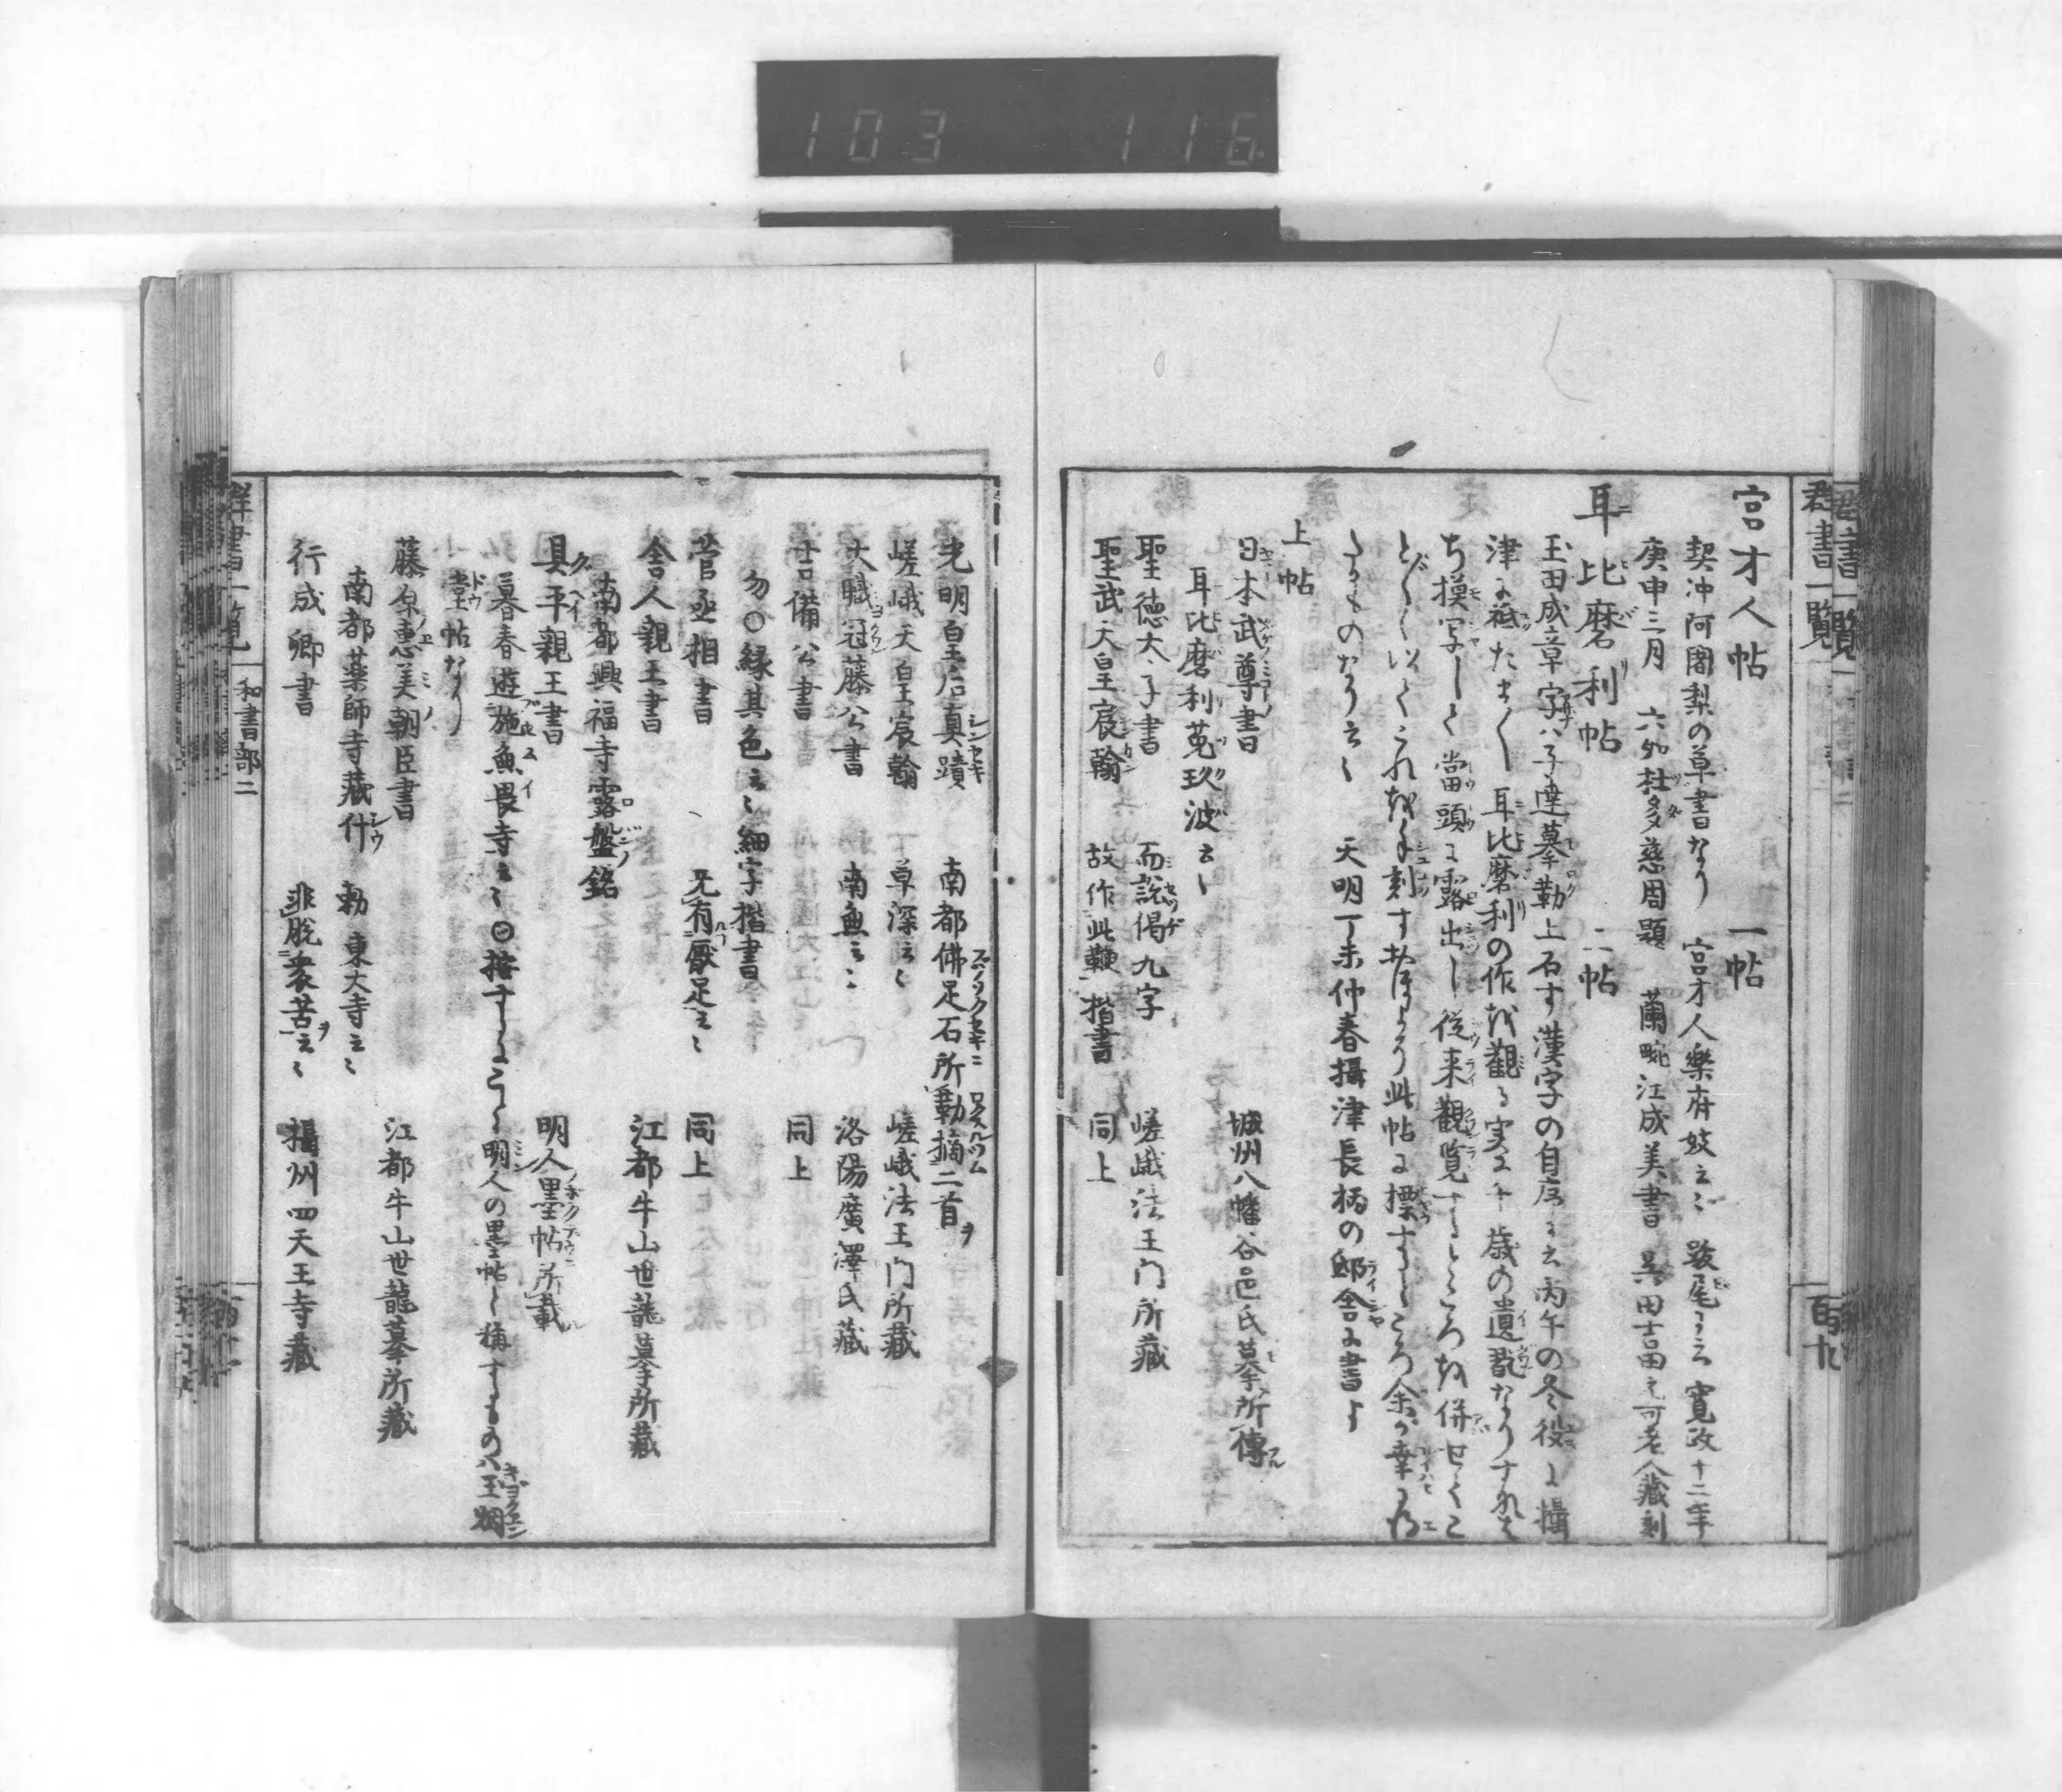 103 116
群書一覧
百九
宮才人帖 一帖
契冲阿闍梨の草書なり 宮才人樂府妓云〻 跋尾に云 寛政十二年
庚申三月 六如杜多慈周題 蘭畹江成美書 呉田吉田元可老人藏刻
耳比磨利帖 二帖
玉田成章字ハ子達摹勒上石す漢字の自序に云丙午の冬役に攝
津に祗たまく 耳比磨利の作を觀る実に千歳の遺翫なりすれそ
ち模写しく當頭に露出し従来觀覧するところを併せくこ
とく以くこれを刻す 此帖に標するところ余が幸に
ものなり云〻 天明丁未仲春攝津長柄の邸舎に書す
上帖
日本武尊書 城州八幡谷邑氏摹所傳
耳比磨利菟玖波云〻
聖徳太子書 而説偈九字 嵯峨法王門所藏
聖武天皇宸翰 故作此鞭 楷書 同上
光明皇后真蹟 南都佛足石所勒摘二首
嵯峨天皇宸翰 草深云〻 嵯峨法王門所藏
大職冠藤公書 南無云〻 洛陽廣澤氏藏
吉備公書 同上
勿〇縁其色云〻細字楷書
菅丞相書 无有厭足云〻 同上
舎人親王書 江都牛山世龍摹所藏
南都興福寺露盤銘
具平親王書 明人墨帖所載
暮春遊施無畏寺云〻〇按するに 明人の墨帖と稱するものハ玉烟
堂帖なり
藤原恵美朝臣書 江都牛山世龍摹所藏
南都薬師寺藏什 勅 東大寺云〻
行成卿書 非脱衆苦云〻 攝州四天王寺藏
群書一覧 和書部二